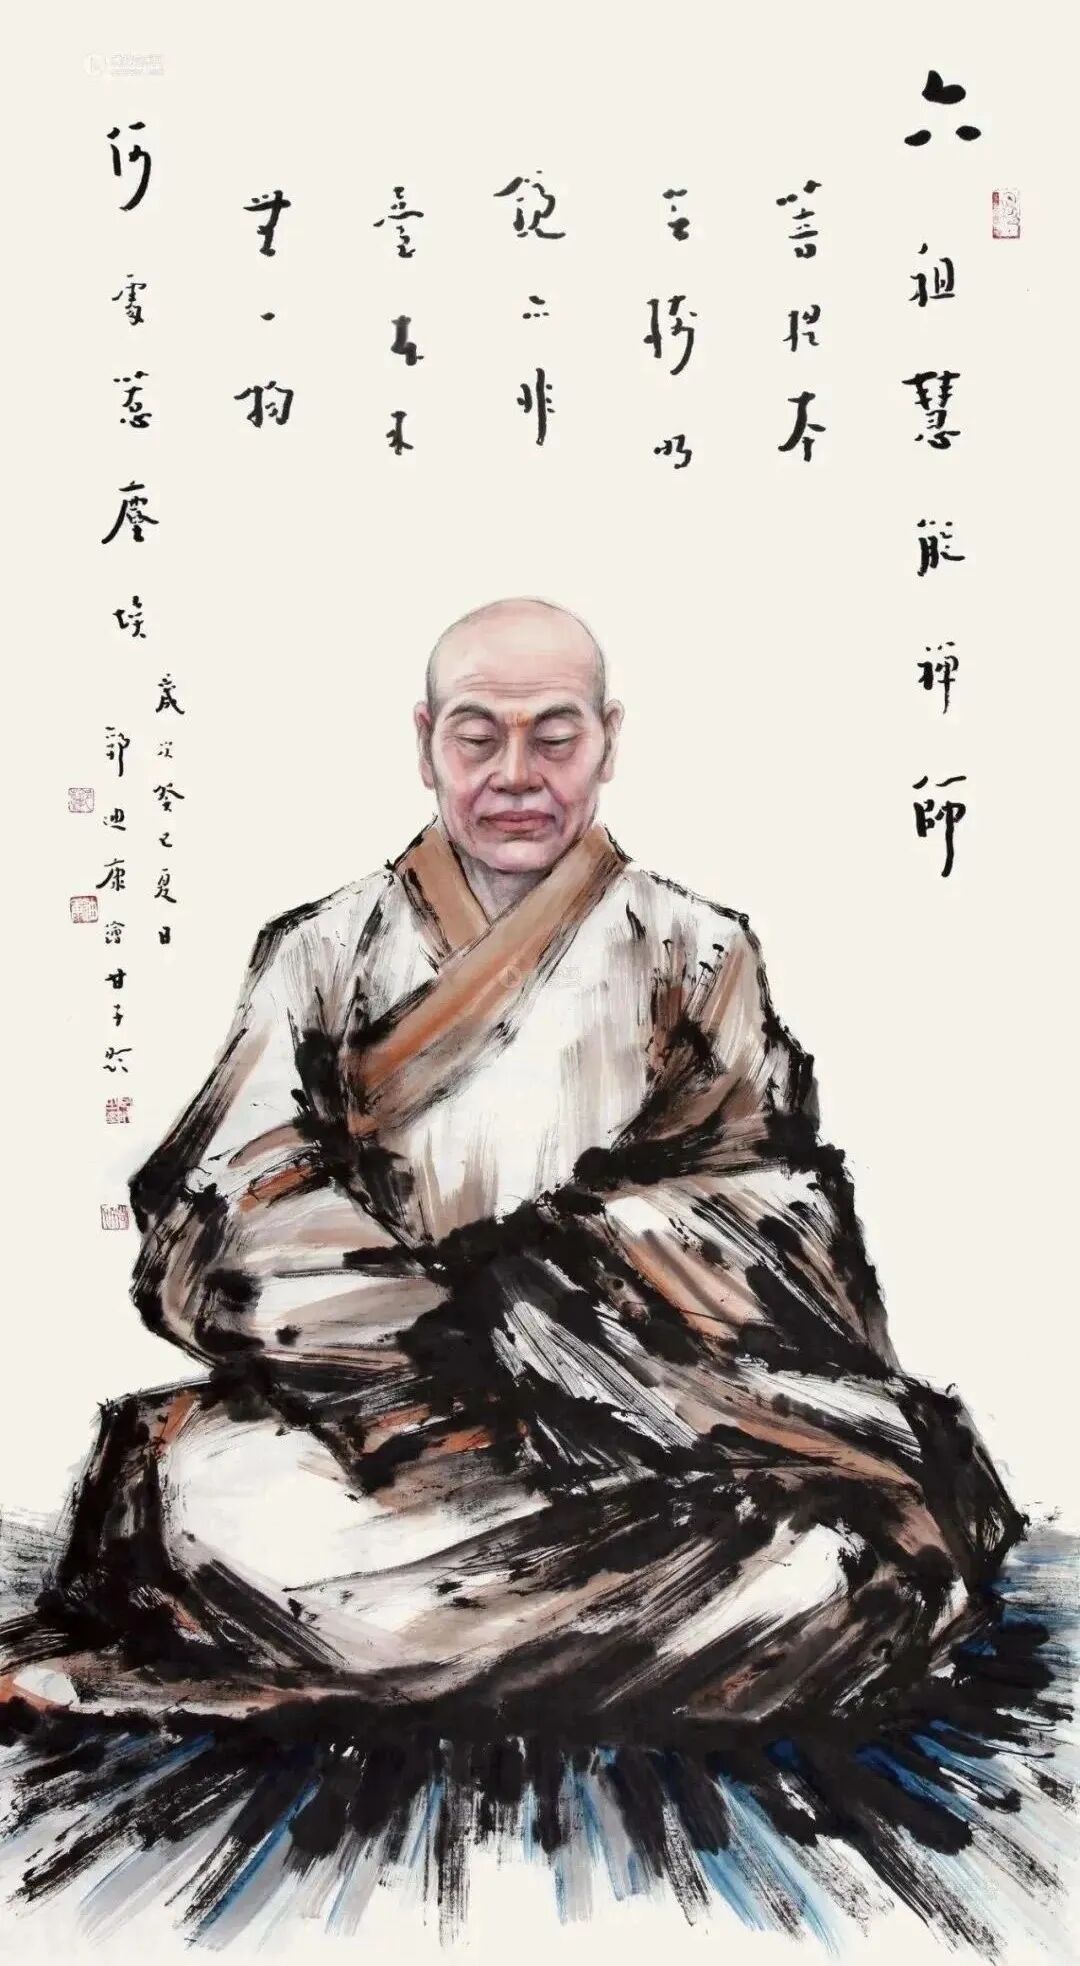 六祖慧能禅師
菩提本
无樹明
鏡亦非
臺本来
無一物
何處惹塵埃
歲次癸巳夏日
郭迪康繪